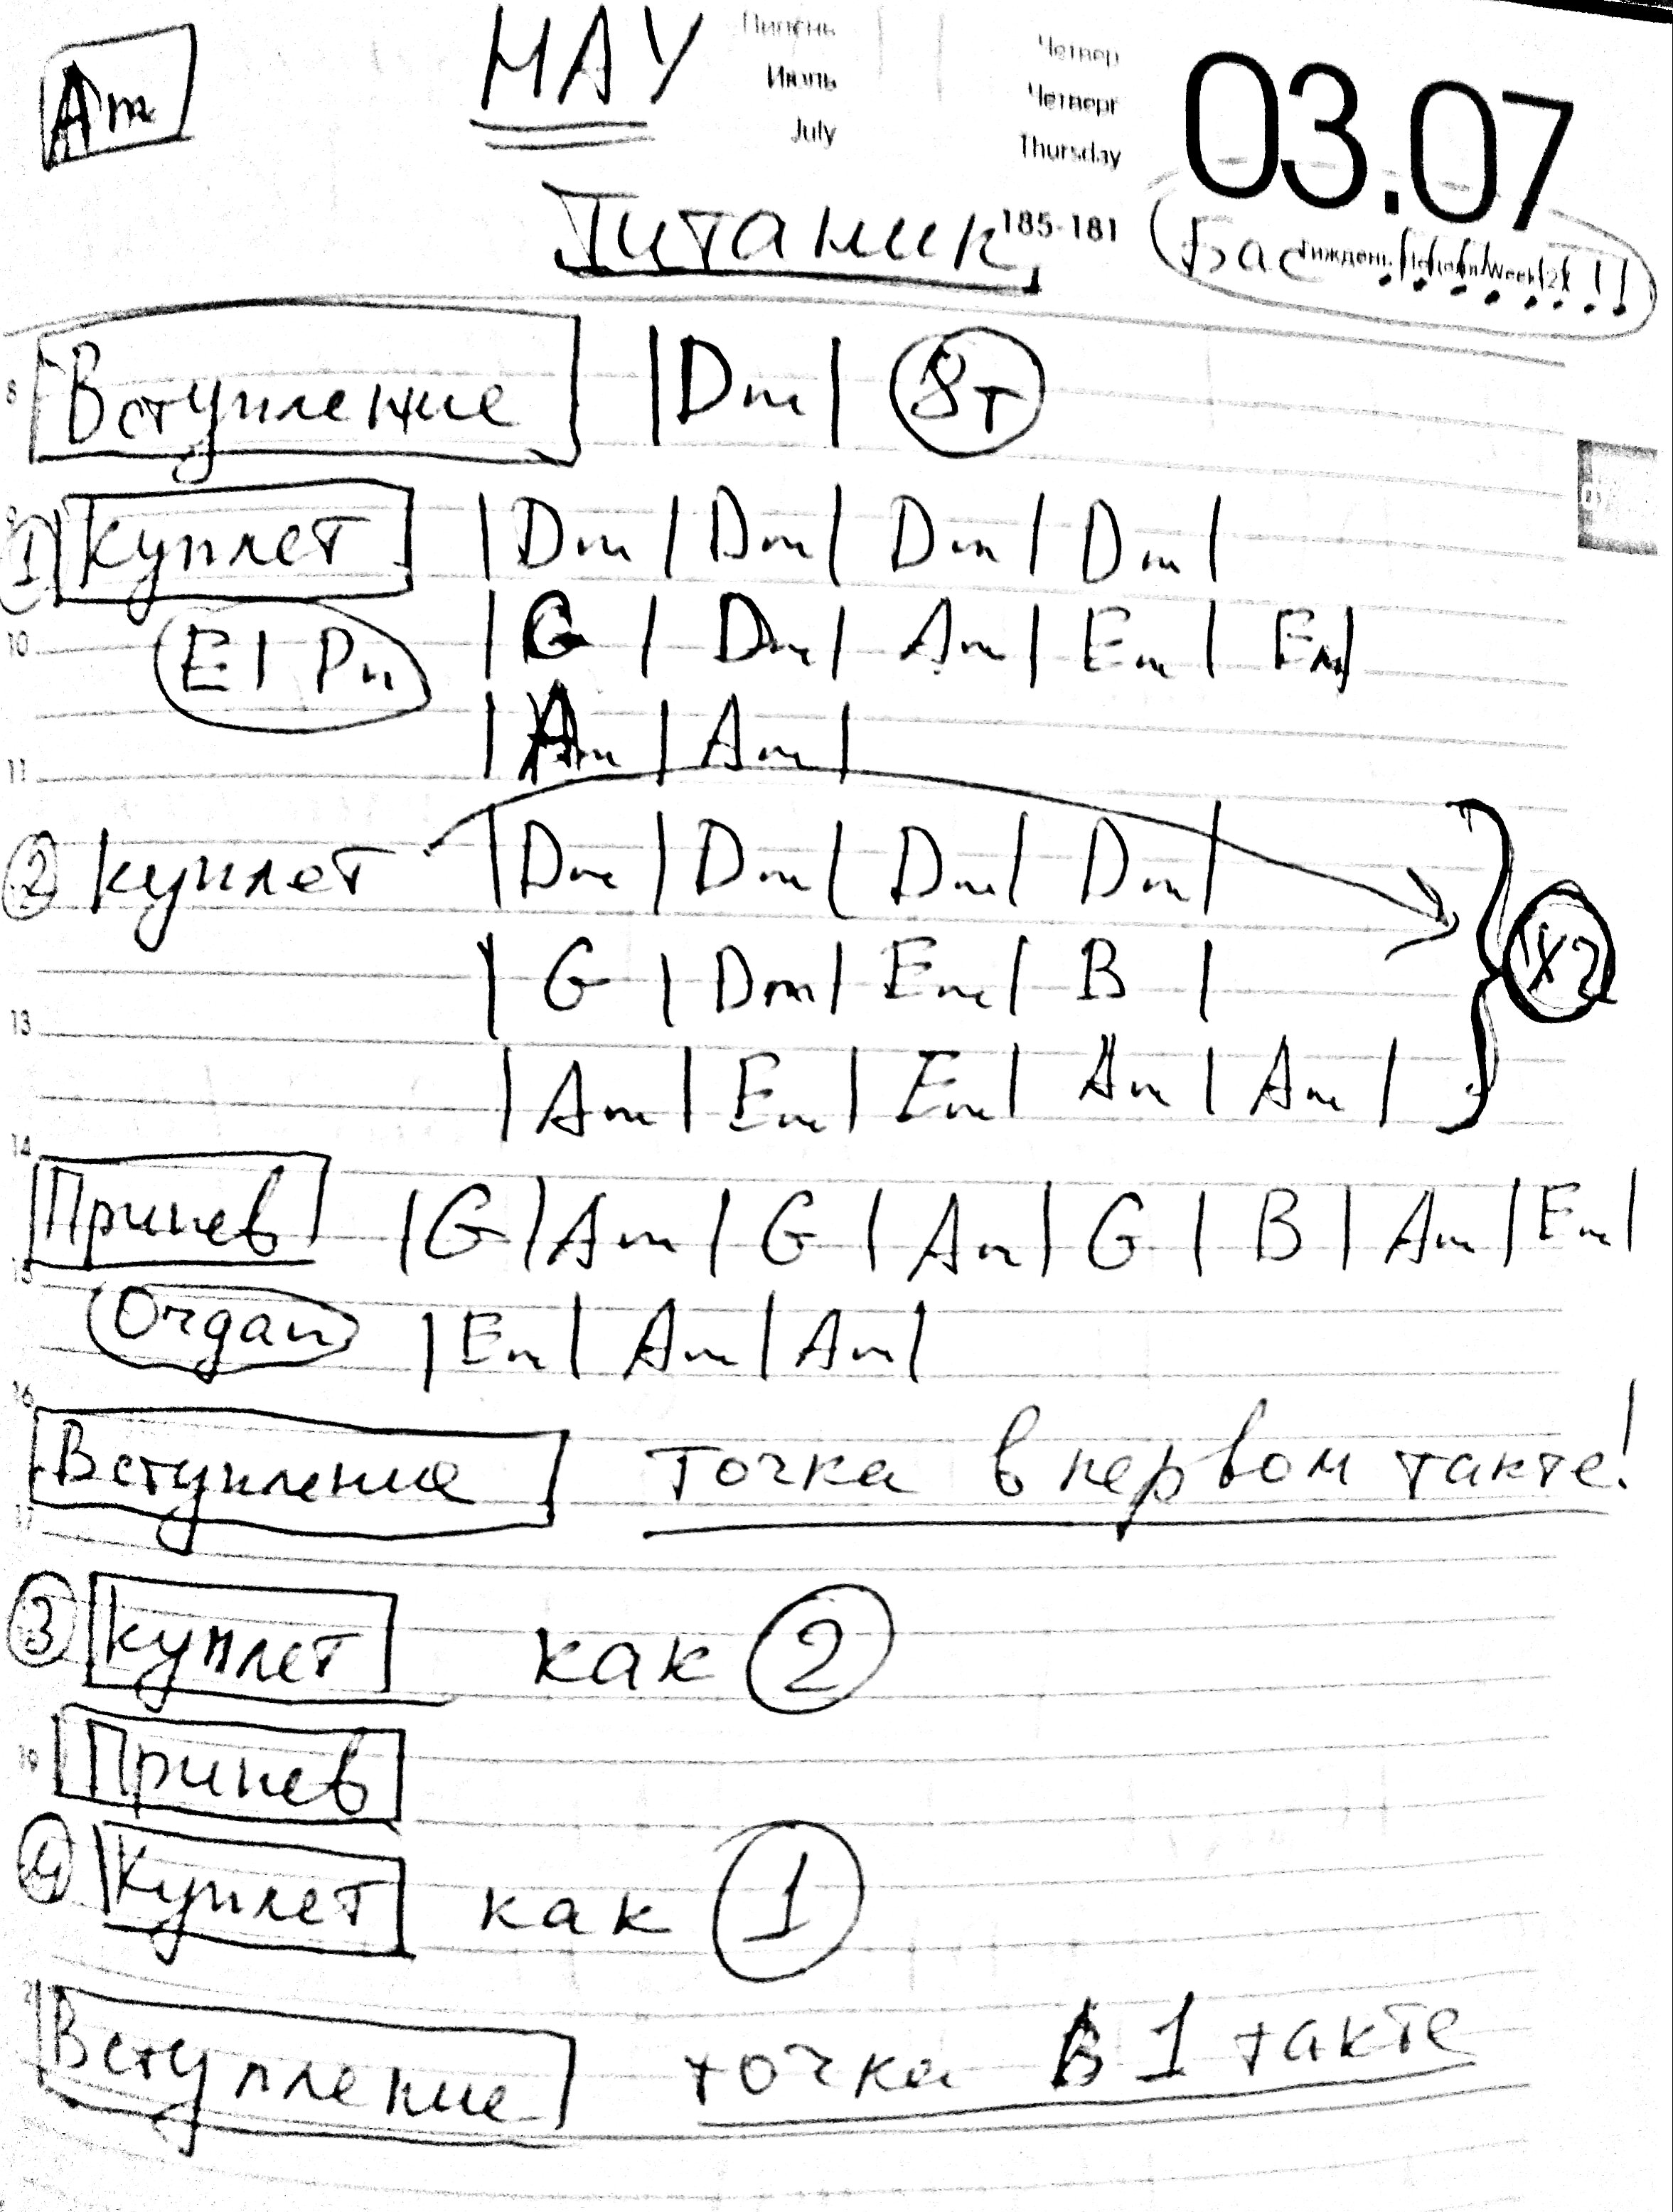 Am НАУ Липень Четвер 03.07
Июль Четверг
July Thursday
Титаник 185-181 Бас !!!!!!!!
8 Вступление |Dm| 8т
1 Куплет |Dm|Dm|Dm|Dm|
10 El Pn |G|Dm|Am|Em|Em|
11 |Am|Am|
2 куплет |Dm|Dm|Dm|Dm| x2
|G|Dm|Em|B|
13
|Am|Em|Em|Am|Am|
14
Припев |G|Am|G|Am|G|B|Am|Em|
15
Organ |Em|Am|Am|
16
Вступление точка в первом такте!
17
3 куплет как 2
19 Припев
4 Куплет как 1
Вступление точка в 1 такте